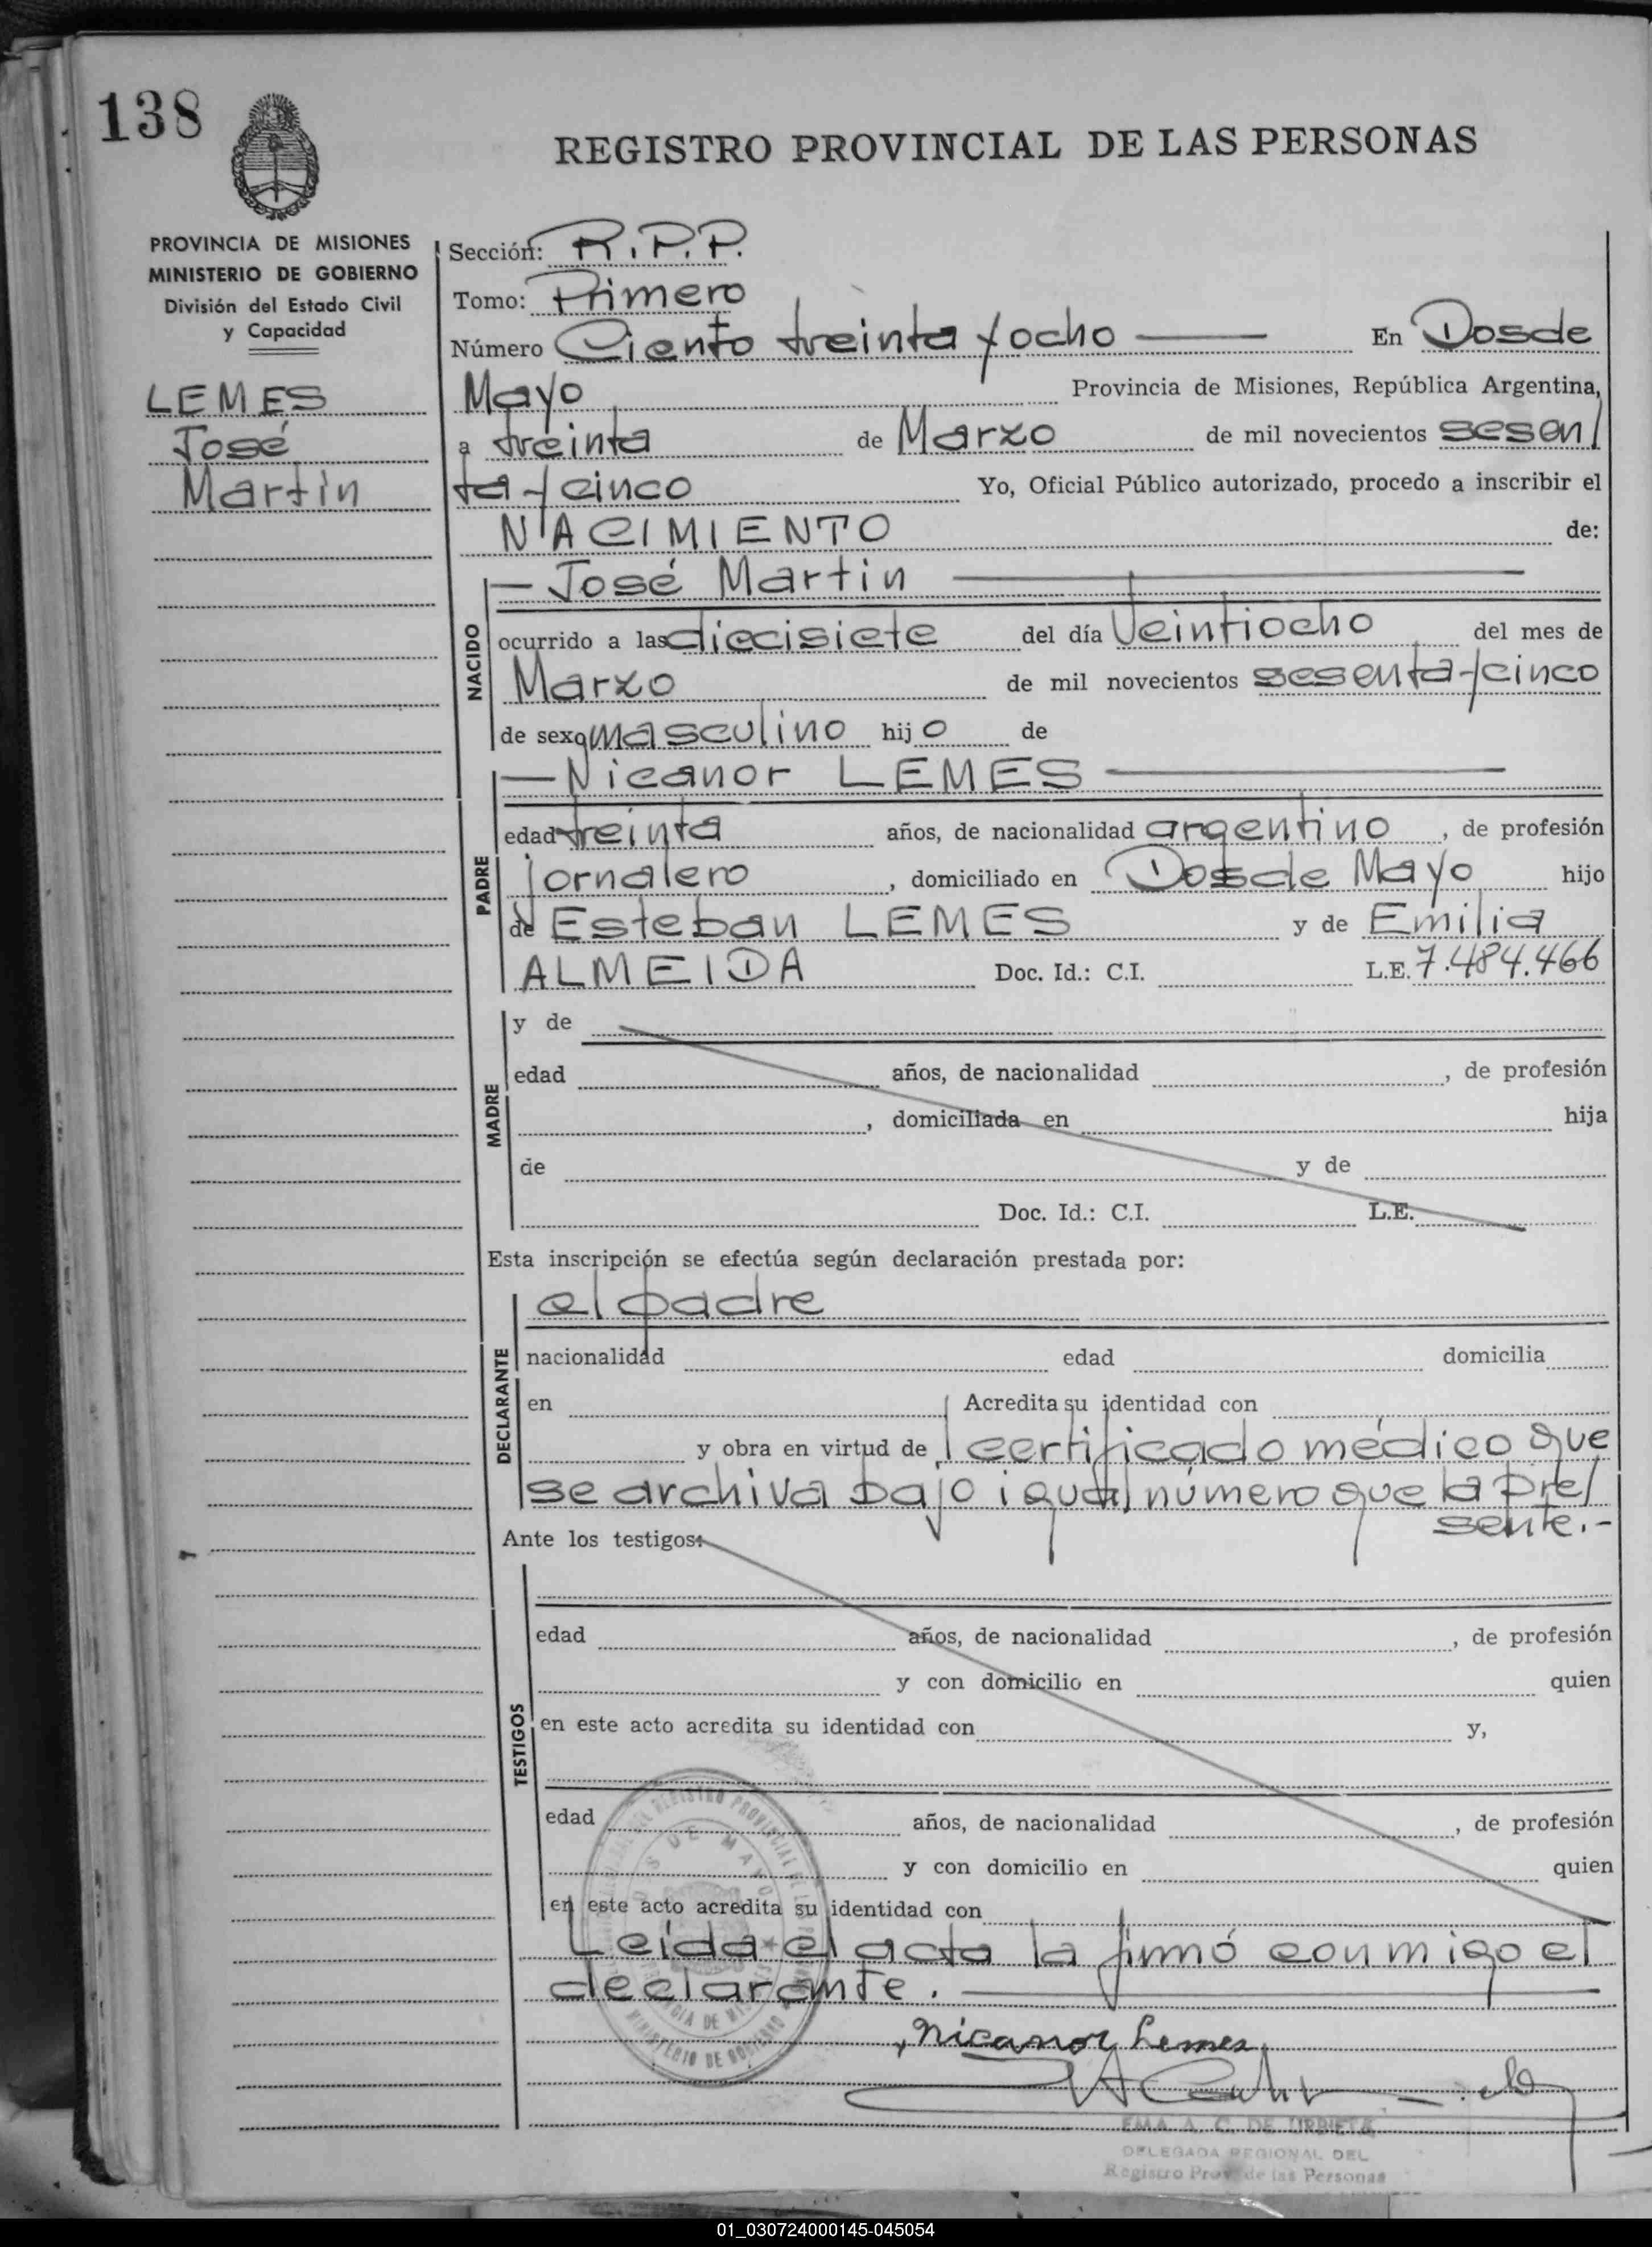 138
REGISTRO PROVINCIAL DE LAS PERSONAS
PROVINCIA DE MISIONES
MINISTERIO DE GOBIERNO
División del Estado Civil
y Capacidad
LEMES
José
Martín
Sección: R.P.P.
Tomo: Primero
Número Ciento treinta y ocho — En Dos de
Mayo Provincia de Misiones, República Argentina,
a treinta de Marzo de mil novecientos sesen/
ta y cinco Yo, Oficial Público autorizado, procedo a inscribir el
NACIMIENTO de:
NACIDO
— José Martin —
ocurrido a las diecisiete del día Veintiocho del mes de
Marzo de mil novecientos sesenta y cinco
de sexo masculino hijo de
PADRE
— Nicanor LEMES —
edad treinta años, de nacionalidad argentino, de profesión
jornalero, domiciliado en Dos de Mayo hijo
de Esteban LEMES y de Emilia
ALMEIDA Doc. Id.: C.I. L.E. 7.484.466
MADRE
y de
edad años, de nacionalidad , de profesión
, domiciliada en hija
de y de
Doc. Id.: C.I. L.E.
Esta inscripción se efectúa según declaración prestada por:
DECLARANTE
el padre
nacionalidad edad domicilia
en Acredita su identidad con
y obra en virtud de certificado médico que
se archiva bajo igual número que la pre/
sente.-
Ante los testigos:
TESTIGOS
edad años, de nacionalidad , de profesión
y con domicilio en quien
en este acto acredita su identidad con y,
edad años, de nacionalidad , de profesión
y con domicilio en quien
en este acto acredita su identidad con
Leída el acta la firmó conmigo el
declarante. —
Nicanor Lemes
EMA A. C. DE URBIETA
DELEGADA REGIONAL DEL
Registro Prov. de las Personas
REGISTRO PROVINCIAL DE LAS
DOS DE MAYO
MINISTERIO DE GOBIERNO
01_030724000145-045054